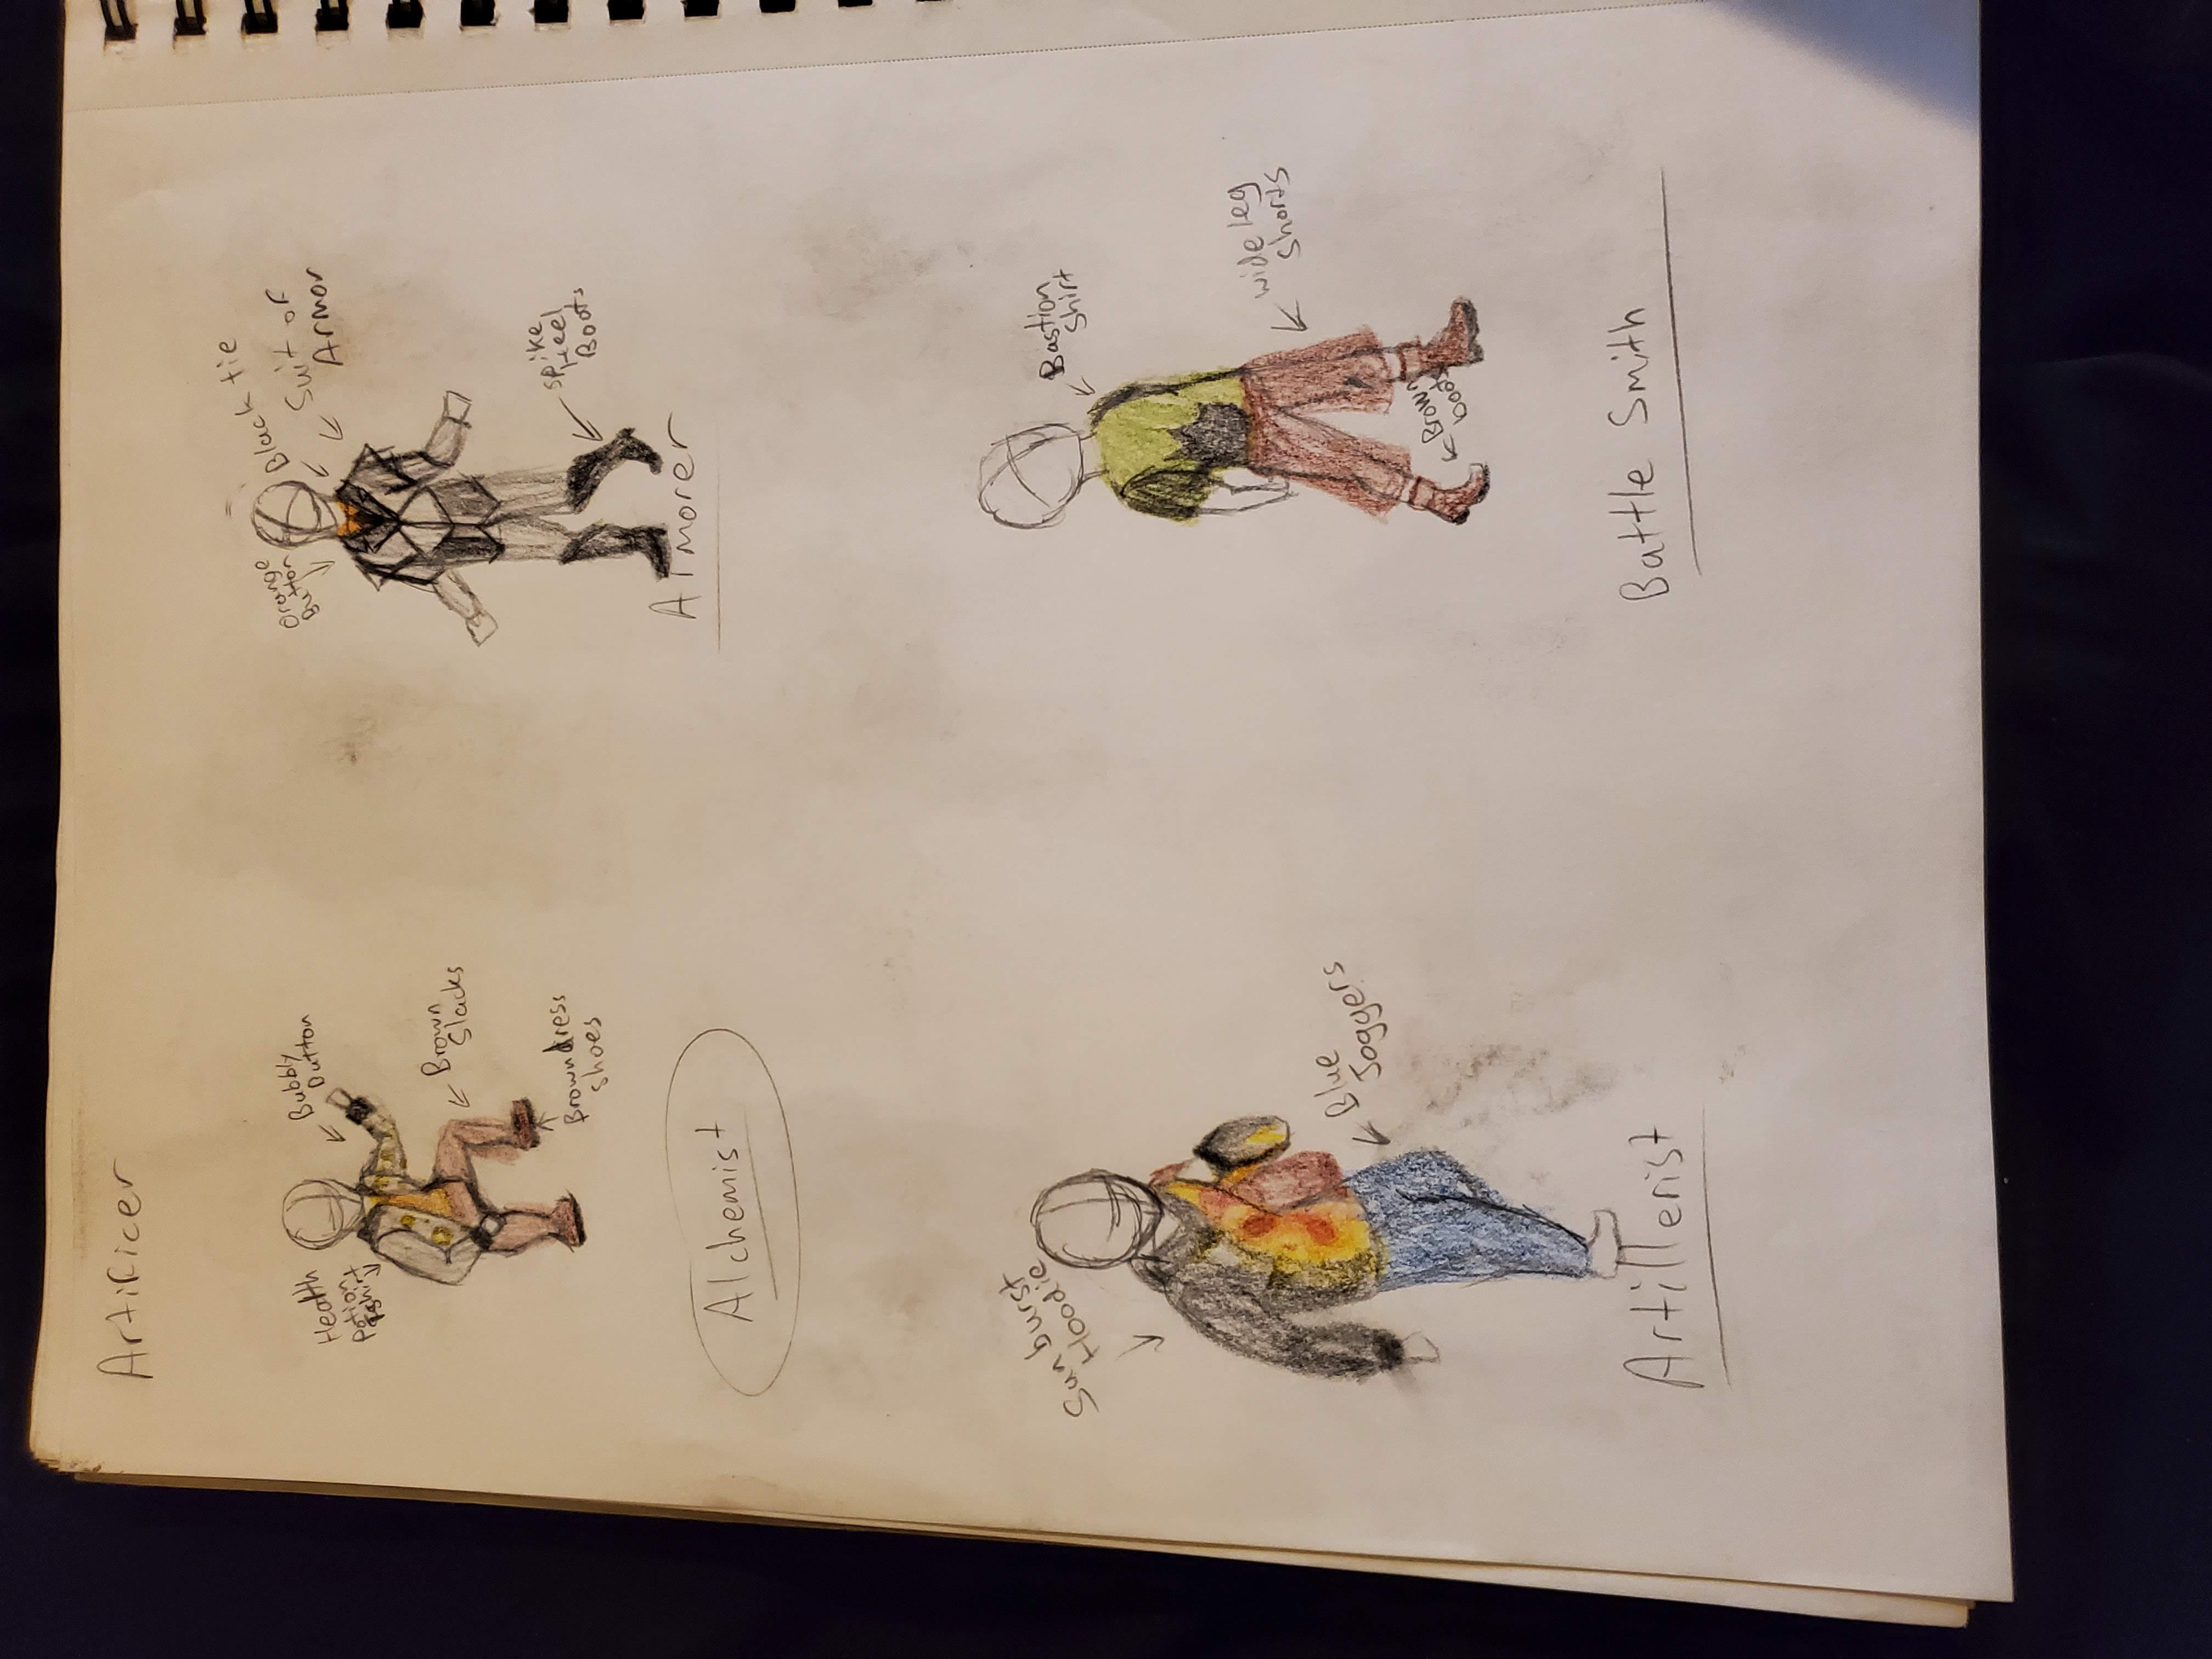 Artificer
Health
Potion
Tshirt
Bubbly
Button
Brown
Slacks
Brown dress
shoes
Alchemist
Orange
Button
Black tie
Suit of
Armor
spike
Heel
Boots
Armorer
Sunburst
Hoodie
Blue
Joggers
Artillerist
Bastion
Shirt
wide leg
shorts
Brown
boots
Battle Smith